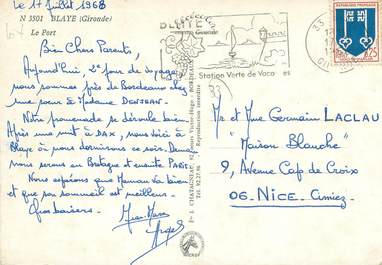 Le 17 Juillet 1968
N 3501 BLAYE (Gironde)
Le Port
Bien Chers Parents,
Aujourd'hui, 2e jour de voyage
nous sommes près de Bordeaux chez
une soeur à Madame DENJEAN.
Notre promenade se déroule bien.
Après une nuit à DAX, nous voici à
Blaye où nous dormirons ce soir. Demain
nous serons en Bretagne et ensuite PARIS.
Nous espérons que Maman va bien
et que son sommeil est meilleur.
Gros baisers.
Jean-Marc
BLAYE
Station Verte de Vacances
33
REPUBLIQUE FRANÇAISE
0,25
Reproduction interdite
Mr et Mme Germain LACLAU
"Maison Blanche"
9, Avenue Cap de Croix
06. NICE. Cimiez